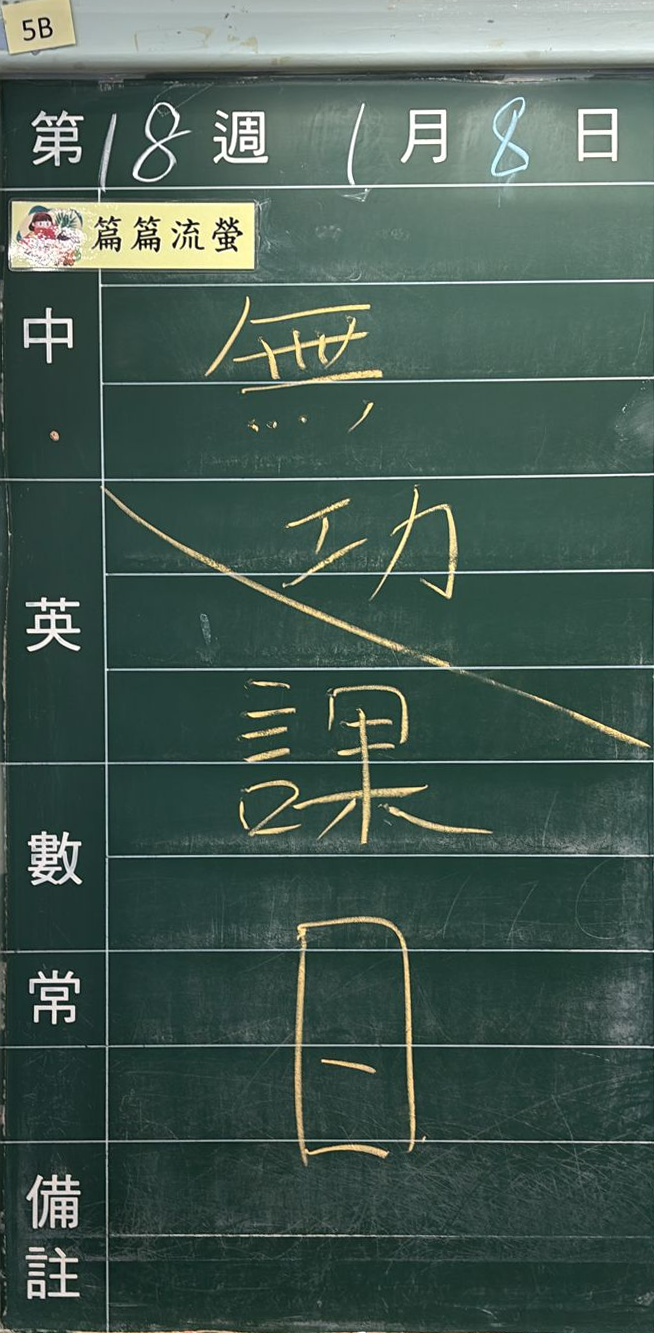 5B
第18週 1月8日
篇篇流螢
中
英
數
常
備註
無
功
課
日